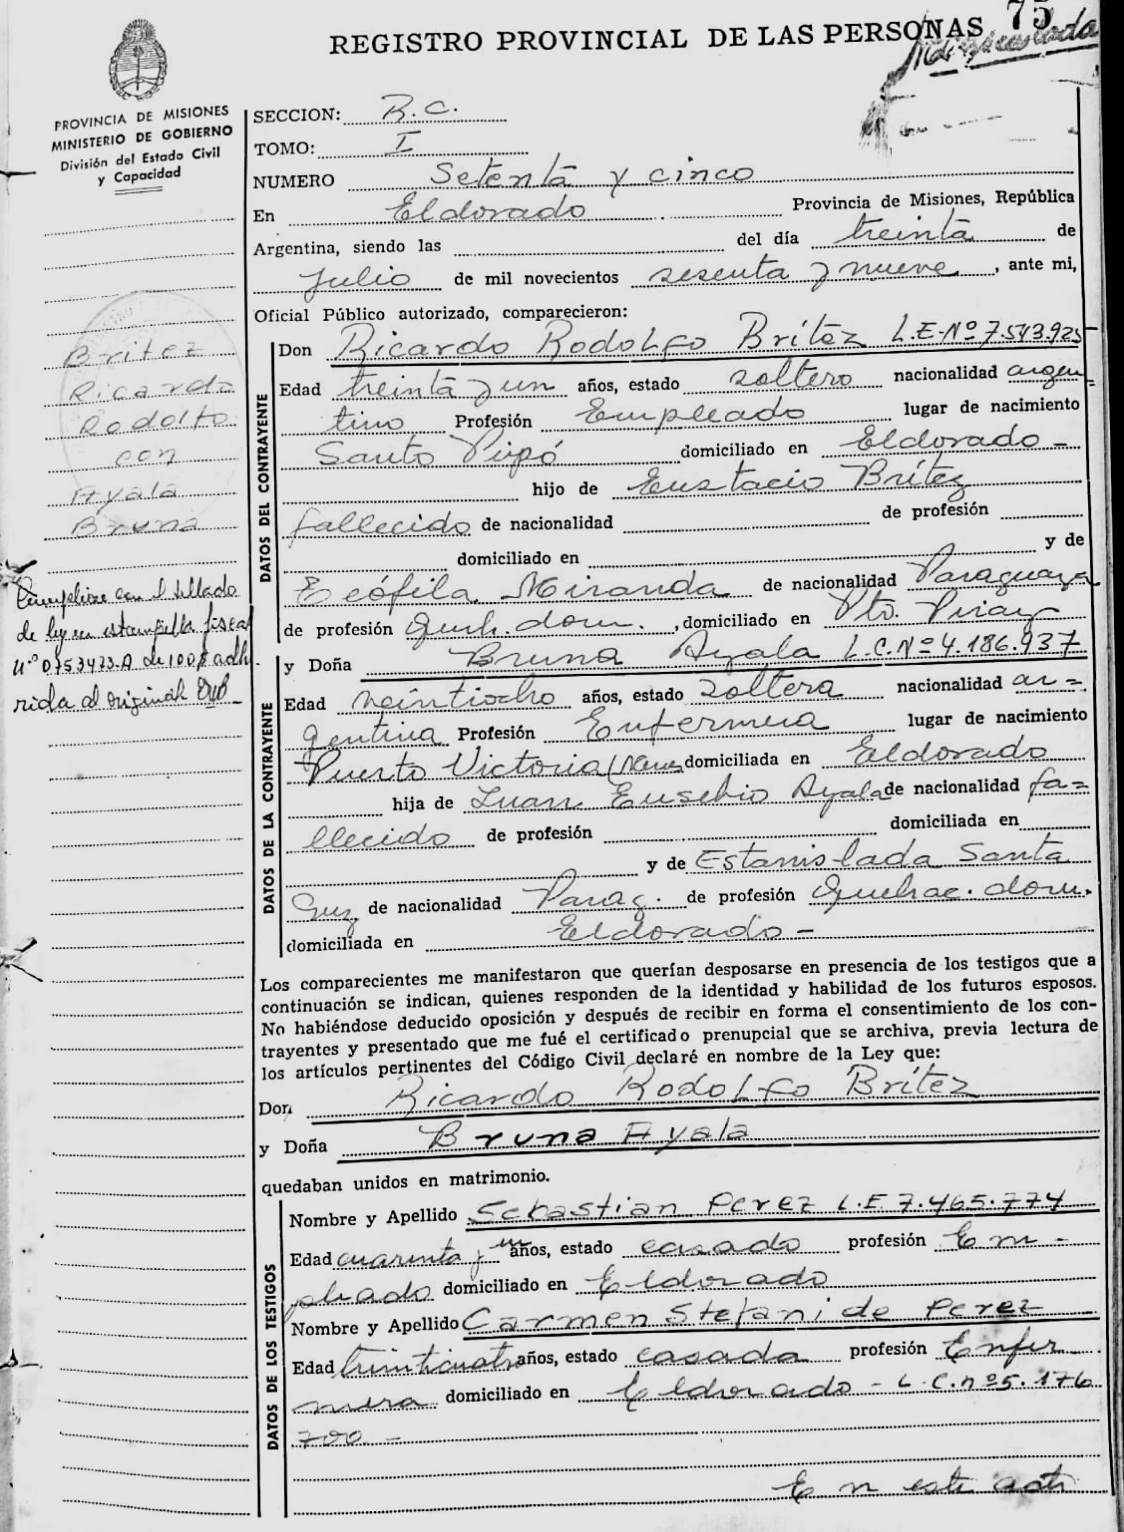 75
REGISTRO PROVINCIAL DE LAS PERSONAS
PROVINCIA DE MISIONES
MINISTERIO DE GOBIERNO
División del Estado Civil
y Capacidad
Britez
Ricardo
Rodolfo
con
Ayala
Bruna
Cumplióse con el sellado
de ley en estampilla fiscal
Nº 0753473.A de 100$ adhe
rida al original
SECCION: R.C.
TOMO: I
NUMERO Setenta y cinco
En Eldorado Provincia de Misiones, República
Argentina, siendo las del día treinta de
Julio de mil novecientos sesenta y nueve, ante mi,
Oficial Público autorizado, comparecieron:
DATOS DEL CONTRAYENTE
Don Ricardo Rodolfo Brítez L.E-Nº 7.543.925
Edad treinta y un años, estado soltero nacionalidad argen=
tino Profesión Empleado lugar de nacimiento
Santo Pipó domiciliado en Eldorado -
hijo de Eustacio Brítez
fallecido de nacionalidad de profesión
domiciliado en y de
Teófila Miranda de nacionalidad Paraguaya
de profesión Queh. dom. , domiciliado en Pto. Piray
DATOS DE LA CONTRAYENTE
y Doña Bruna Ayala L.C.Nº 4.186.937
Edad veintiocho años, estado soltera nacionalidad ar=
gentina Profesión Enfermera lugar de nacimiento
Puerto Victoria domiciliada en Eldorado
hija de Juan Eusebio Ayala de nacionalidad fa=
llecido de profesión domiciliada en
y de Estanislada Santa
Cruz de nacionalidad Parag. de profesión Quehac. dom.
domiciliada en Eldorado -
Los comparecientes me manifestaron que querían desposarse en presencia de los testigos que a
continuación se indican, quienes responden de la identidad y habilidad de los futuros esposos.
No habiéndose deducido oposición y después de recibir en forma el consentimiento de los con-
trayentes y presentado que me fué el certificado prenupcial que se archiva, previa lectura de
los artículos pertinentes del Código Civil declaré en nombre de la Ley que:
Don Ricardo Rodolfo Brítez
y Doña Bruna Ayala
quedaban unidos en matrimonio.
DATOS DE LOS TESTIGOS
Nombre y Apellido Sebastian Perez L.E 7.465.774
Edad cuarenta y un años, estado casado profesión Em-
pleado domiciliado en Eldorado
Nombre y Apellido Carmen Stefani de Perez
Edad treinticuatro años, estado casada profesión Enfer
mera domiciliado en Eldorado - L.C.nº 5.176
700 -
En este acto